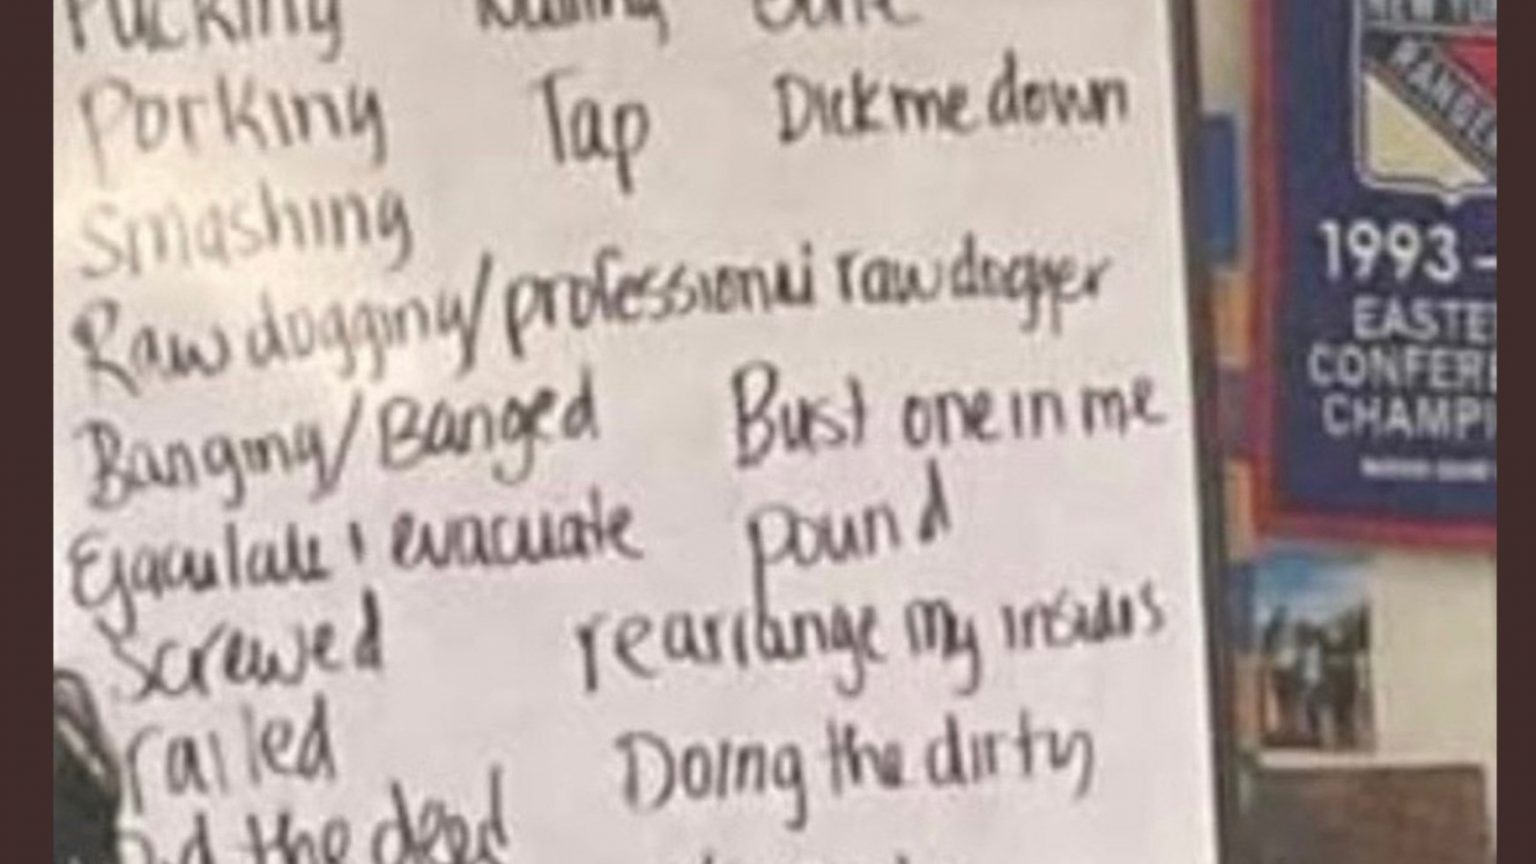 Fucking Nailing
Porking Tap Dick me down
Smashing
Raw dogging/professional raw dogger
Banging/Banged Bust one in me
Ejaculate / evacuate pound
Screwed rearrange my insides
railed Doing the dirty
the deed
NEW YORK
RANGERS
1993 -
EASTE
CONFERE
CHAMPI